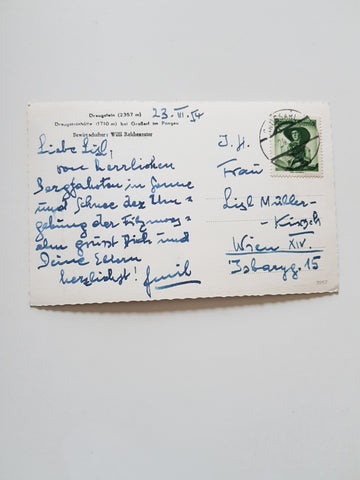 Draugstein (2357 m)
Draugsteinhütte (1710 m) bei Großarl im Pongau
Bewirtschafter: Willi
23. III. 54
Liebe Lisl,
von herrlichen
Bergfahrten in Sonne
und Schnee der Um-
gebung der Filzmoos-
alm grüßt Dich und
Deine Eltern
herzlichst! Emil
I. H.
Frau
Lisl Müller-
-Kirsch
Wien XIV.
Isbaryg. 15